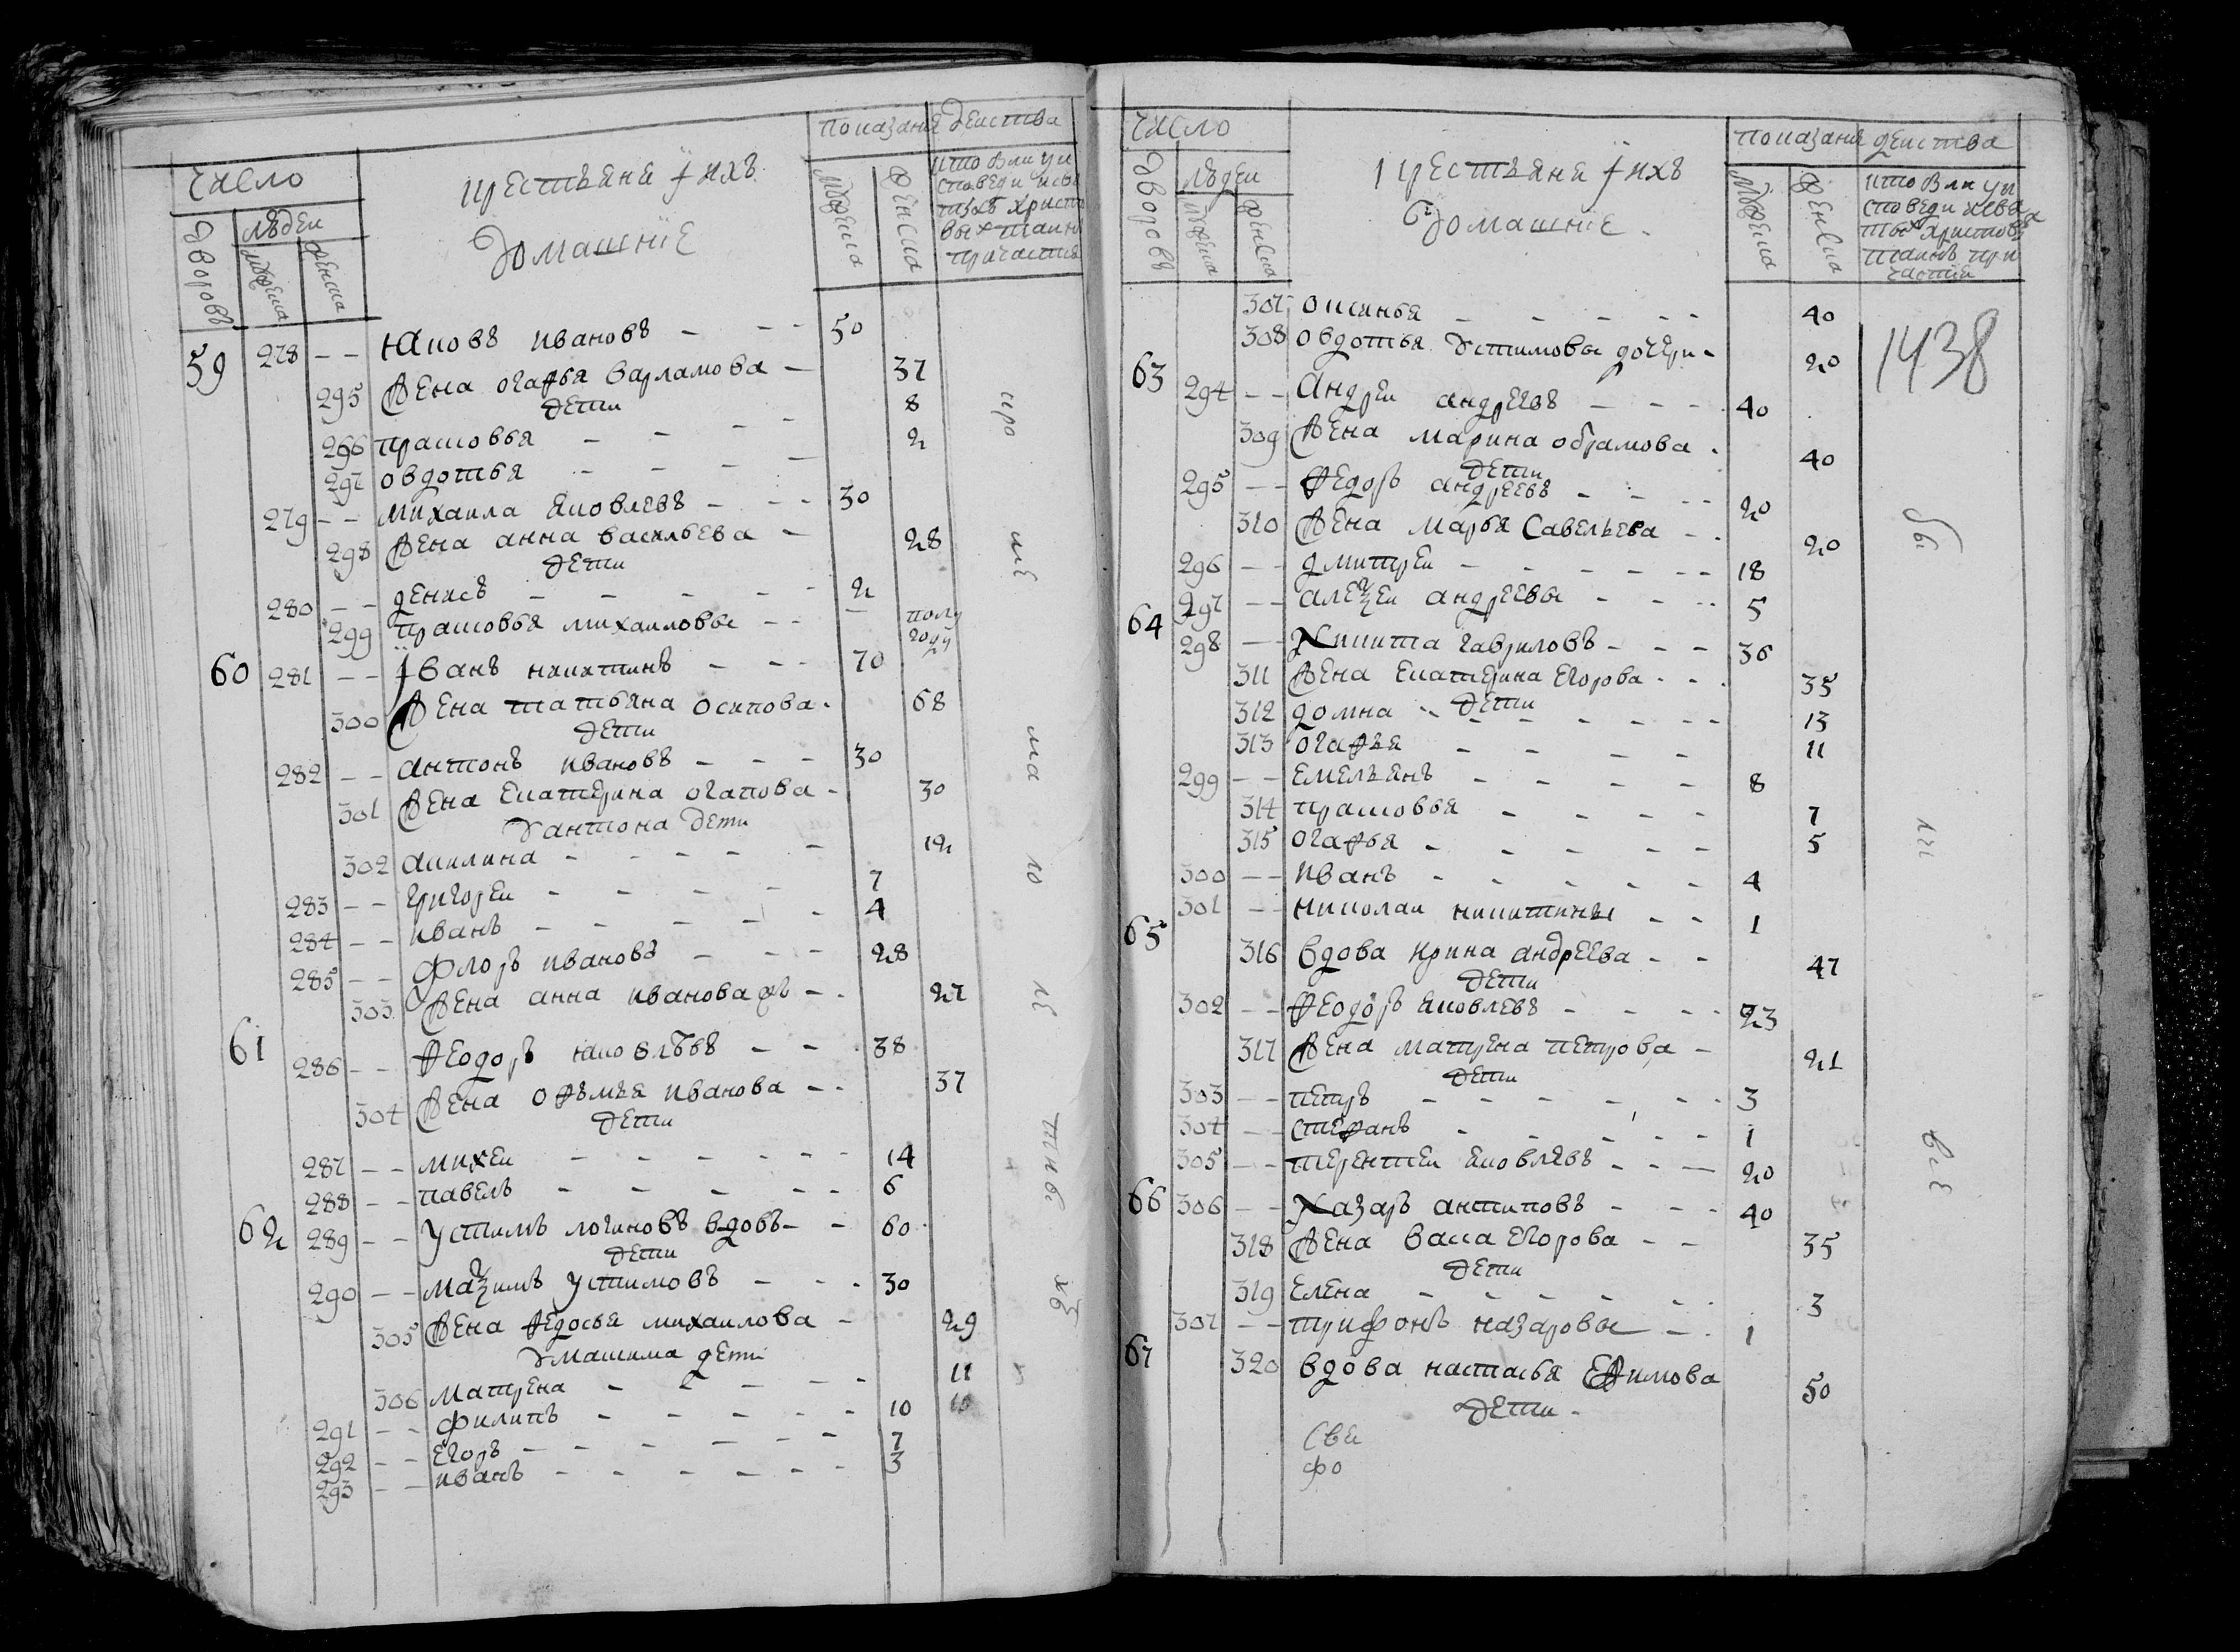 число
показание действа
дворовъ
людеи
мужеска
женска
крестьяня ї ихъ
домашнїе
мужеска
женска
кто был у и
споведи и свя
тыхъ христо
выхъ таинъ
причастия
59 278 – – Яковъ ивановъ – – – 50
295 Жена огафья варламова – 37
дети
296 прасковья – – – – 8
297 овдотья – – – – 2
279 – – михаила яковлевъ – – – 30
298 Жена анна васильева – 28
дети
280 – – денисъ – – – – – 2
299 прасковья михаиловы – – полу
году
60 281 – – їванъ никитинъ – – – 70
300 Жена татьяна осипова – 68
дети
282 – – антонъ ивановъ – – – 30
301 Жена екатерина огапова – 30
У антона дети
302 акилина – – – – – 12
283 – – григореи – – – – 7
284 – – иванъ – – – – – – 4
285 – – флоръ ивановъ – – – 28
303 Жена анна иванова – – 27
61 286 – – Феодоръ яковлѣвъ – – – 38
304 Жена офимья иванова – – 37
дети
287 – – михеи – – – – – – 14
288 – – павелъ – – – – – 6
62 289 – – устимъ логиновъ вдовъ – – 60
дети
290 – – маѯимъ устимовъ – – – 30
305 Жена федосья михаилова – 29
У макима дети
306 матрена – – – – – 11
291 – – филипъ – – – – – 10
292 – – егоръ – – – – – – 7
293 – – иванъ – – – – – – 3
кро
ме
ма
ло
ле
тны
хъ
число
показание действа
дворовъ
людеи
мужеска
женска
крестьяня ї ихъ
домашнїе
мужеска
женска
кто был у и
споведи и свя
тыхъ христовы
таинъ при
частїи
1438
307 оксинья – – – – – 40
308 овдотья Устимовы дочери – 20
63 294 – – Андреи андреевъ – – – 40
309 Жена марина обрамова – 40
дети
295 – – Федоръ андреевъ – – – – 20
310 Жена марья Савельева – – 20
296 – – дмитреи – – – – – – 18
297 – – алеѯеи андреевы – – – 5
64 298 – – Никита гавриловъ – – – 36
311 Жена екатерина егорова – – 35
дети
312 домна – – – – – – – 13
313 огафья – – – – 11
299 – – емельянъ – – – – 8
314 прасковья – – – – 7
315 огафья – – – – – 5
300 – – иванъ – – – – – 4
301 – – николаи никитины – – 1
65 316 вдова ирина андреева – – 47
дети
302 – – Феодоръ яковлевъ – – – – 23
317 Жена матрена петрова – 21
дети
303 – – петръ – – – – – – 3
304 – – стефанъ – – – – – 1
305 – – терентеи яковлевъ – – – 20
66 306 – – Назаръ антиповъ – – – 40
318 Жена васа егорова – – 35
дети
319 елена – – – – – – 3
307 – – трифонъ назаровы – – 1
67 320 вдова настасья Ефимова 50
дети –
бы
ли
все